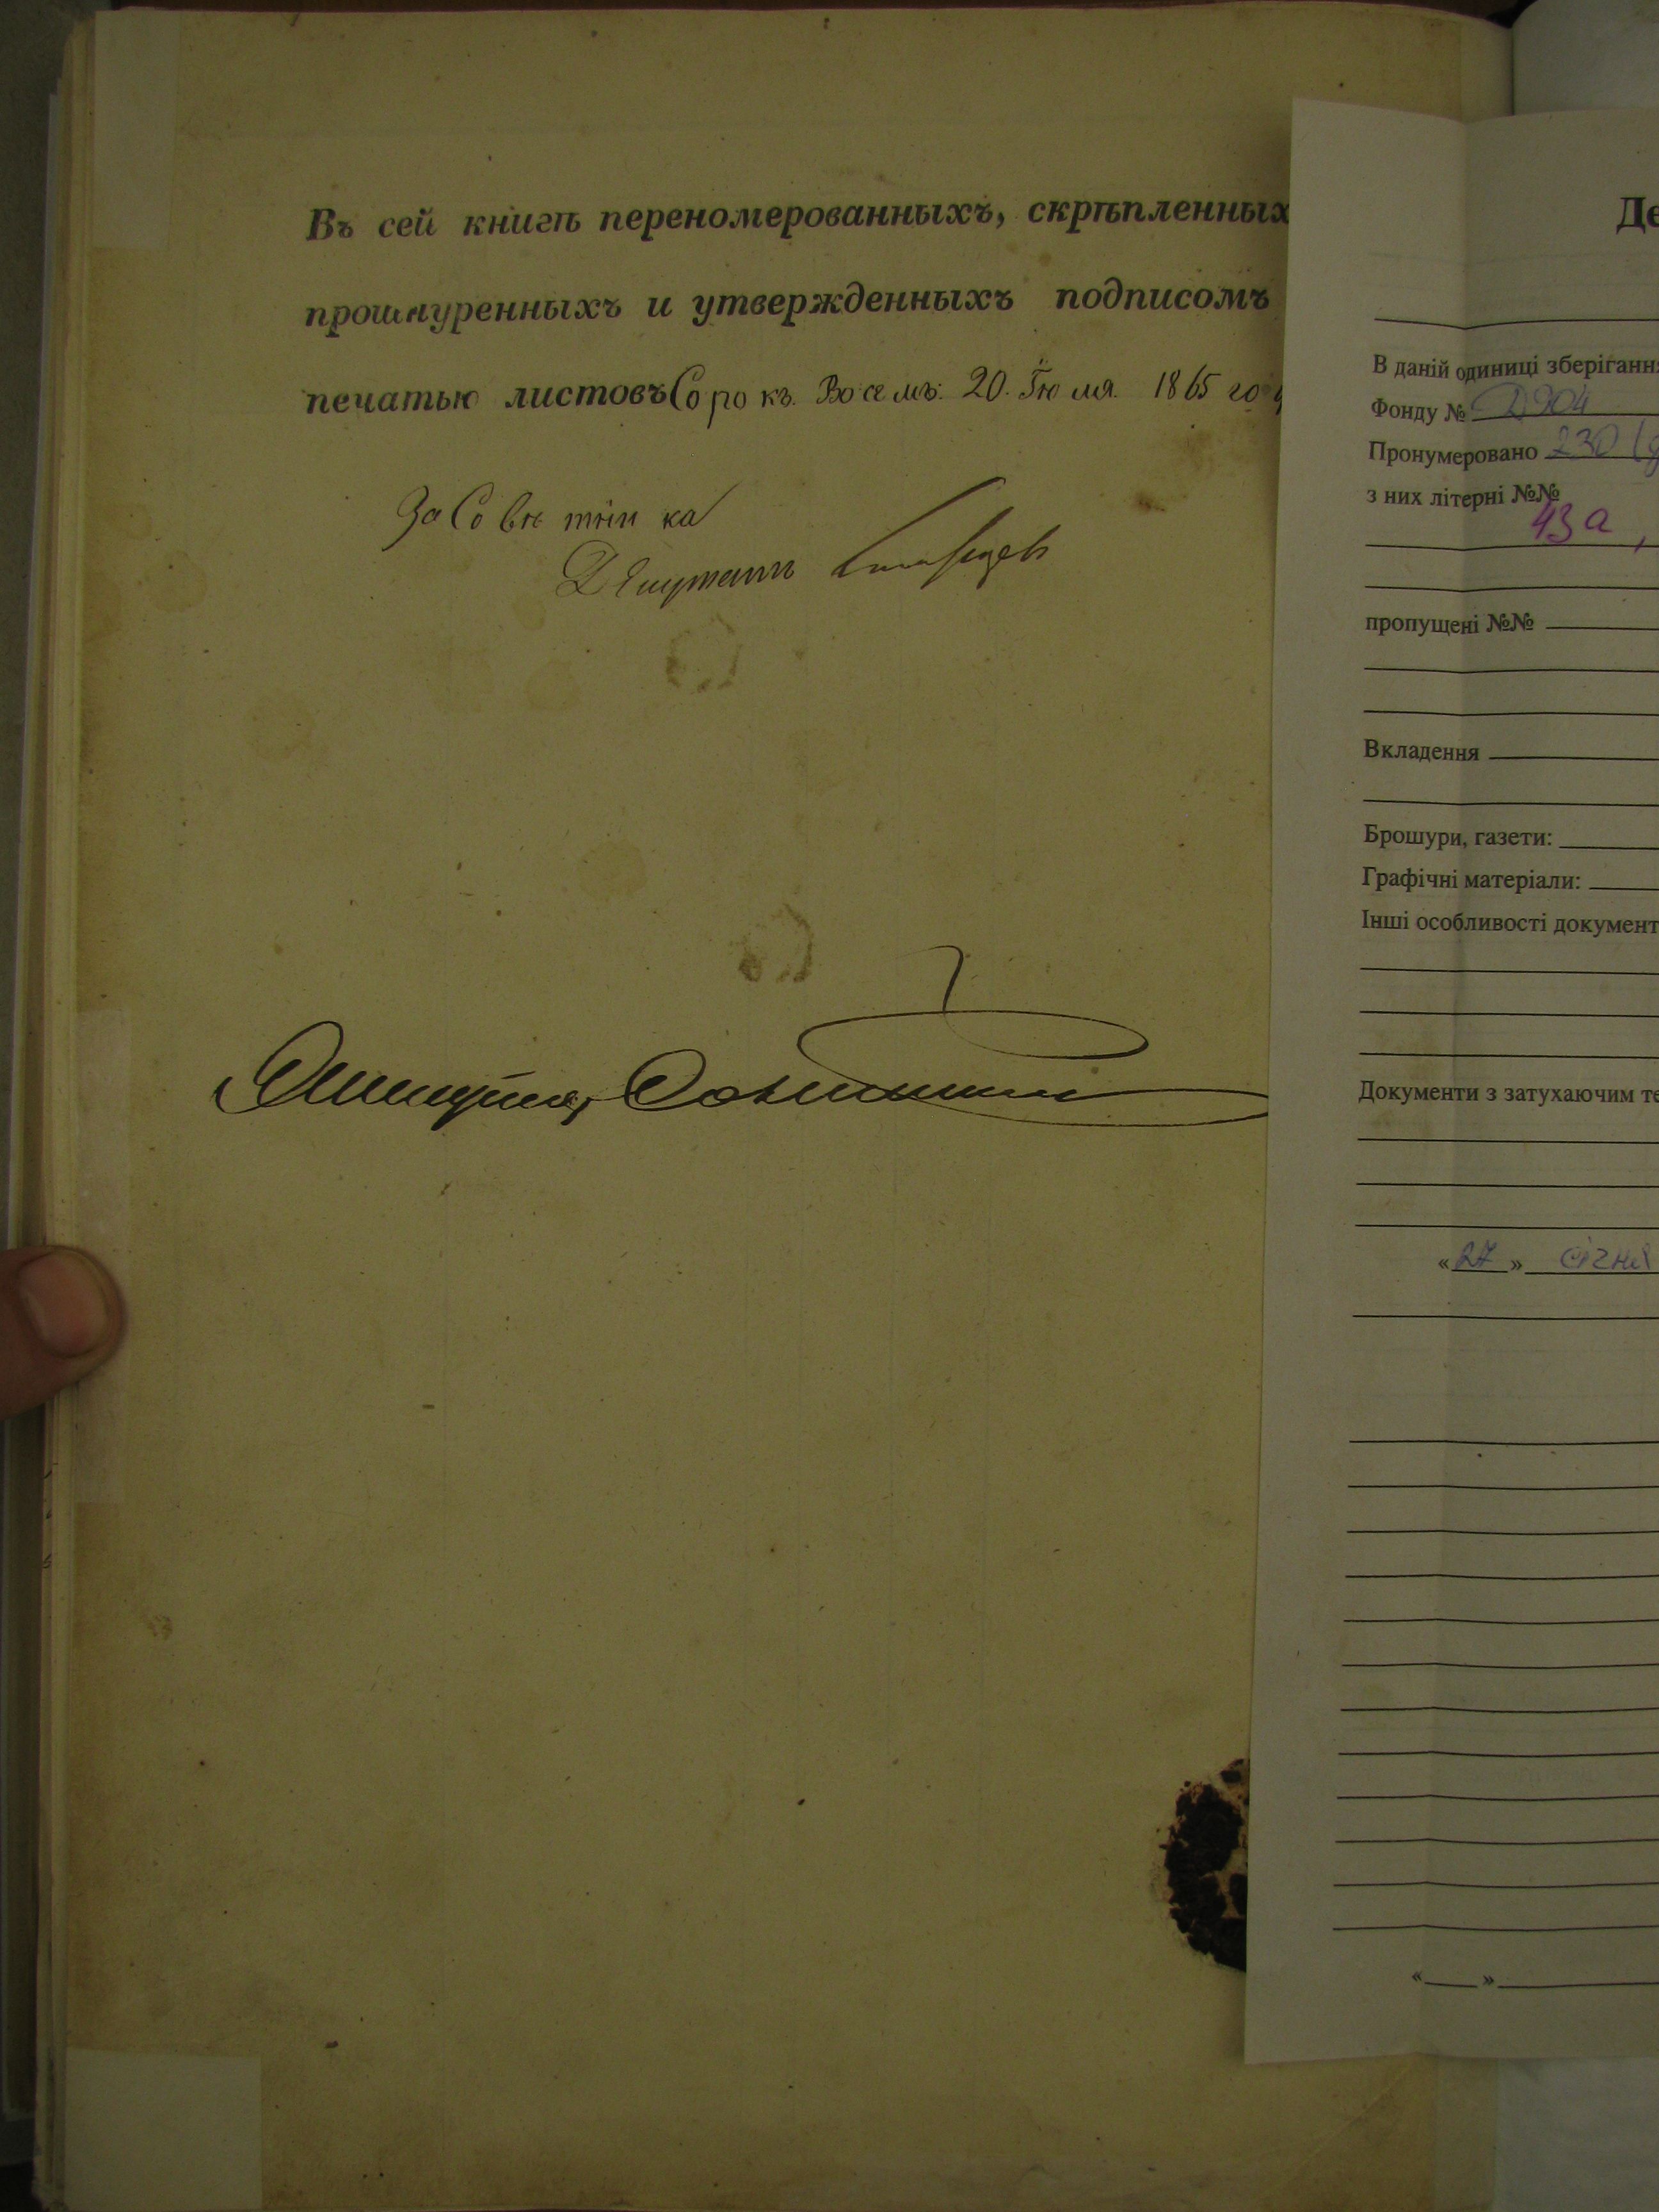 Въ сей книгѣ переномерованныхъ, скрѣпленных
прошнуренныхъ и утвержденныхъ подписомъ
печатью листовъ Сорокъ Восемъ: 20. Іюля. 1865 год
За Совѣтника
Депутатъ
Де
В даній одиниці зберіганн
Фонду № Д904
Пронумеровано 230 (
з них літерні №№
43а,
пропущені №№
Вкладення
Брошури, газети:
Графічні матеріали:
Інші особливості документ
Документи з затухаючим те
«27» січня
« »